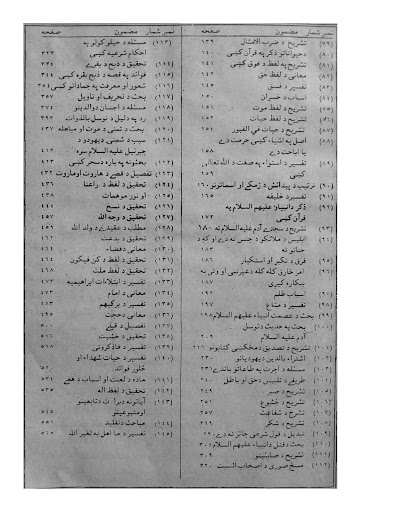 نمبر شمار مضمون صفحه
(۷۹) تشریح د ضرب الامثال ۱۳۹
(۸۰) دحیواناتو ذکر په قرآن کښی ۱۴۰
(۸۱) تشریح په لفظ د فوق کښی ۱۴۱
(۸۲) معانی د لفظ حق ۱۴۲
(۸۳) تفسیر د فسق ۱۴۵
(۸۴) اسباب د خسران ۱۵۰
(۸۵) تشریح د لفظ موت ۱۵۱
(۸۶) تشریح د لفظ حیات ۱۵۲
(۸۷) تشریح د حیات فی القبور ۱۵۳
(۸۸) اصل په اشیاء کښی حرمت دے
یا اباحت دے ۱۵۸
(۸۹) تفسیر د استواء په صفت د الله تعالی
کښی ۱۵۹
(۹۰) ترتیب د پیدائش د زمکے او اسمانونو ۱۶۰
(۹۱) تفسیر خلیفه ۱۶۵
(۹۲) ذکر دانبیاؤ علیهم السلام په
قرآن کښی ۱۷۲
(۹۳) تشریح د سجدے آدم علیه السلام ته ۱۸۰
(۹۴) ابلیس د ملائکو د جنس نه دے او که د
جناتو نه ۱۸۳
(۹۵) فرق د تکبر او استکبار ۱۸۶
(۹۶) امر خارق کله کله دغیرنبی او ولی نه
ښکاره کیږی ۱۸۷
(۹۷) اسباب ظلم ۱۹۲
(۹۸) تفسیر د متاع ۱۹۷
(۹۹) بحث د عصمت انبیاء علیهم السلام ۱۹۸
(۱۰۰) بحث په حدیث د توسل
آدم علیه السلام ۲۰۹
(۱۰۱) تشریح د تصدیق دمخکښی کتابونو ۲۱۶
(۱۰۲) اشتراء بالدین دیهودیانو ۲۳۰
(۱۰۳) مسئله د اجرت په طاعاتو باندے ۲۳۱
(۱۰۴) طریقے د تلبیس دحق او باطل ۲۴۰
(۱۰۵) تفسیر د صبر ۲۴۹
(۱۰۶) تشریح د خشوع ۲۵۱
(۱۰۷) شرح د شفاعت ۲۵۷
(۱۰۸) تشریح د شکر ۲۶۹
(۱۰۹) تبدیل د قول شرعی جائز نه دے
(۱۱۰) بحث د قتل دانبیاء علیهم السلام ۳۰۴
(۱۱۱) تشریح د صابئینو ۳۰۹
(۱۱۲) مسخ صوری د اصحاب السبت ۳۲۰
نمبر شمار مضمون صفحه
(۱۱۳) مسئله د حیلو کولو په
احکام شرعیه کښی ۳۲۳
(۱۱۴) تحقیق د ذبح د بقرے ۳۳۴
(۱۱۵) فوائد په قصه د ذبح بقره کښی ۳۴۴
(۱۱۶) شعور او معرفت په جماداتو کښی ۳۵۱
(۱۱۷) بحث د تحریف او تاویل ۳۵۷
(۱۱۸) مسئله د احسان دوالدینو ۳۷۴
(۱۱۹) رد په دلیل د توسل بالذرات ۳۹۳
(۱۲۰) بحث د تمنی د موت او مباهله ۴۰۷
(۱۲۱) سبب د دشمنی دیهودو د
جبرئیل علیه السلام سره ۴۱۲
(۱۲۲) بحثونه په باره دسحر کښی ۴۲۳
(۱۲۳) تفصیل د قصے د هاروت اوماروت ۴۳۲
(۱۲۴) تحقیق د لفظ د راعنا ۴۳۶
(۱۲۵) او نور موهمات ۴۳۸
(۱۲۶) تحقیق د نسخ ۴۴۱
(۱۲۷) تحقیق د وجه الله ۴۵۷
(۱۲۸) مطلب د عقیدے د ولد الله ۴۵۹
(۱۲۹) تحقیق د بدعت ۴۶۱
(۱۳۰) معانی دقضاء ۴۶۳
(۱۳۱) تحقیق د لفظ د کن فیکون ۴۶۴
(۱۳۲) تحقیق د لفظ ملت ۴۶۸
(۱۳۳) تفسیر د ابتلاءات ابراهیمیه ۴۷۳
(۱۳۴) معانی د امام ۴۷۴
(۱۳۵) تفسیر د یزکیهم ۴۸۳
(۱۳۶) معانی دحجت ۴۹۵
(۱۳۷) تفصیل د قبلے ۵۰۱
(۱۳۸) تحقیق د خشیت ۵۱۶
(۱۳۹) تفسیر د فاذکرونی ۵۱۸
(۱۴۰) تفسیر د حیات شهداء او
څلور فوائد
(۱۴۱) ماده د لعنت او اسباب د هغے ۵۳۴
(۱۴۲) تحقیق د لفظ اله ۵۳۵
(۱۴۳) آیاتونه دبراءت دتابعینو
اومتبوعینو ۵۴۵
(۱۴۴) مباحث دتقلید ۵۵۱
(۱۴۵) تفسیر د ما اهل به لغیر الله ۵۶۵